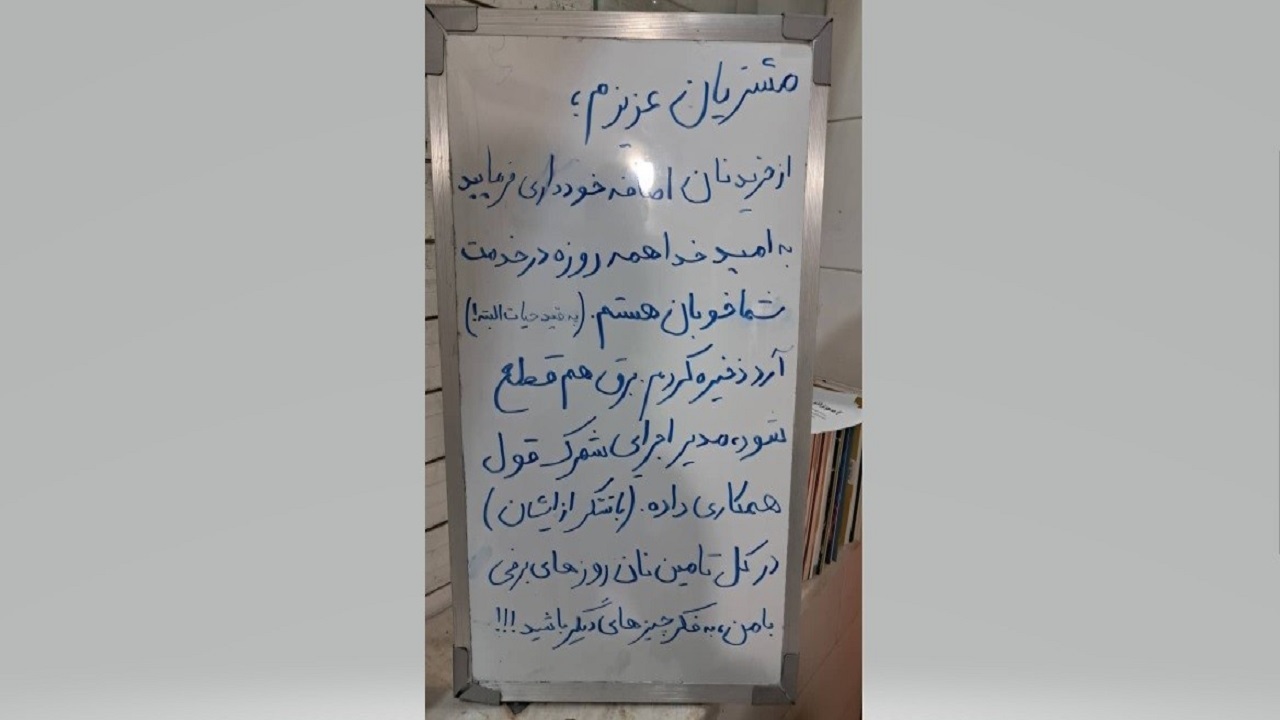 مشتریان عزیزم؛
از خرید نان اضافه خودداری فرمایید
به امید خدا همه روزه در خدمت
شما خوبان هستم. (به قید حیات البته!)
آرد ذخیره کردم. برق هم قطع
شود، مدیر اجرای شهرک قول
همکاری داده. (با تشکر از ایشان)
در کل تامین نان روزهای برفی
با من، به فکر چیزهای دیگر باشید!!!